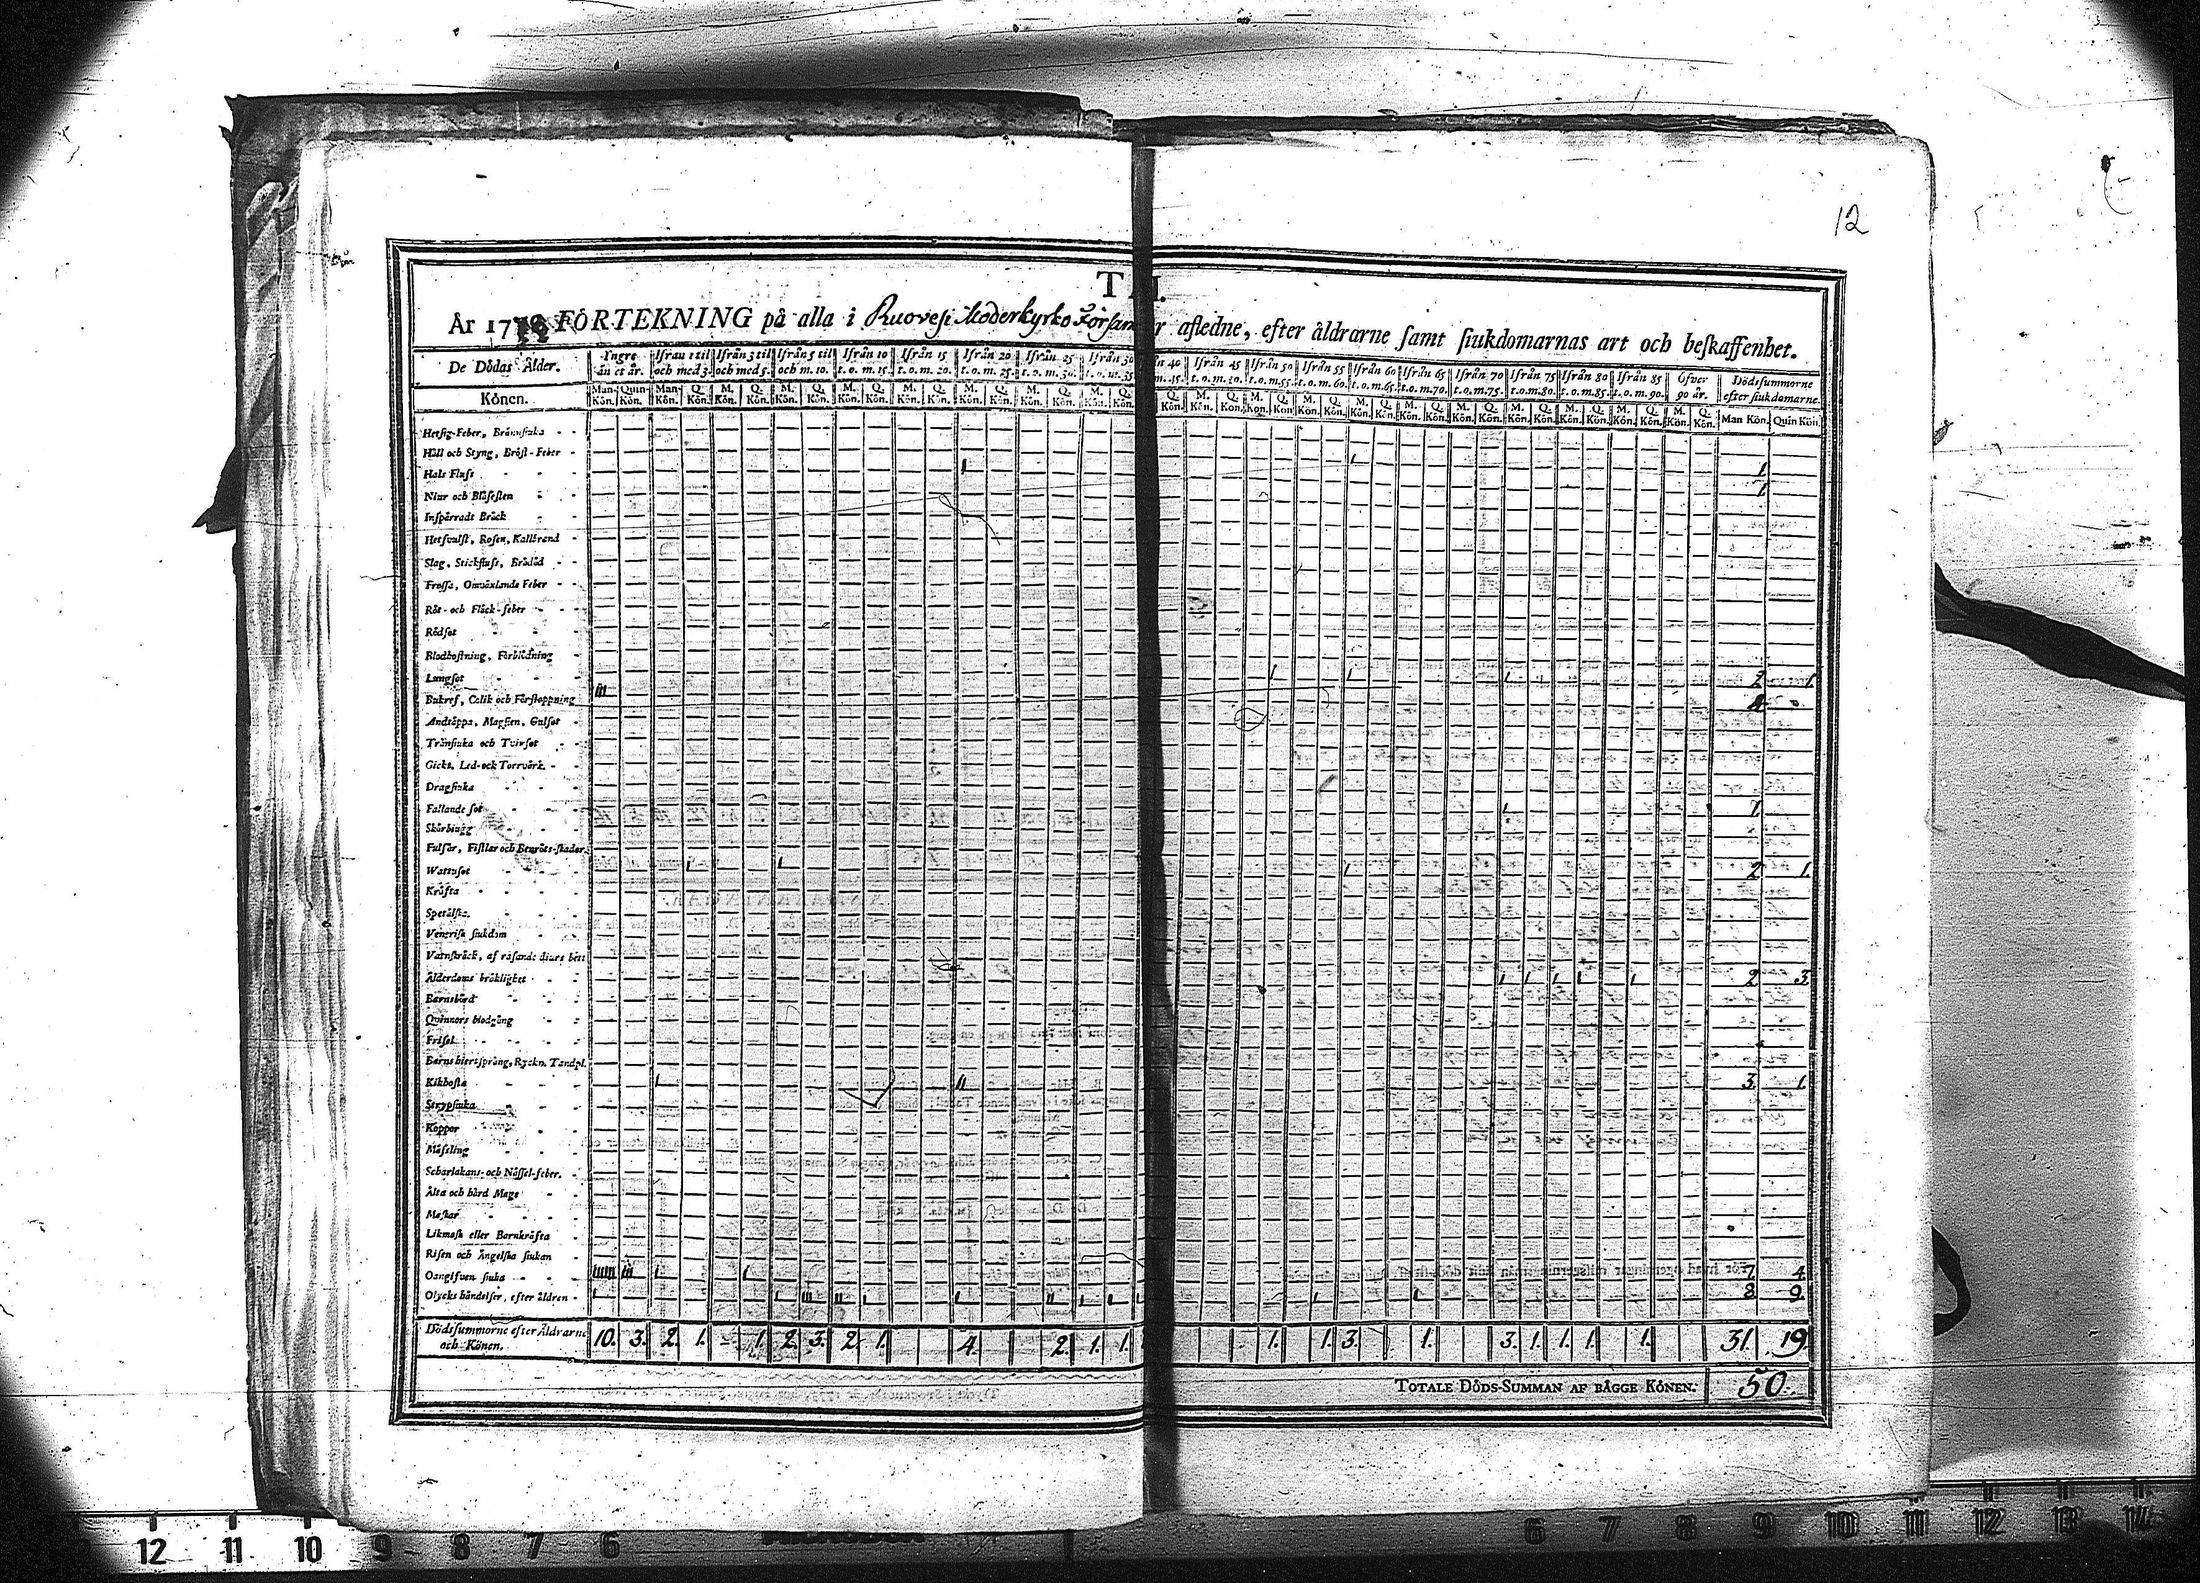 12
T
År 177 FÖRTEKNING på alla i Ruovesi Moderkyrko Försam aflledne, efter åldrarne samt siukdomarnas art och beskaffenhet.
De Dödas Ålder. Yngre än et år. Ifrån 1 til och med 3. Ifrån 3 til och med 5. Ifrån 5 til och m. 10. Ifrån 10 t.o.m. 15. Ifrån 15 t.o.m. 20. Ifrån 20 t.o.m. 25. Ifrån 25 t.o.m. 30. Ifrån 30 t.o.m. 35 40 m. 45. Ifrån 45 t.o.m. 50. Ifrån 50 t.o.m. 55. Ifrån 55 t.o.m. 60. Ifrån 60 t.o.m. 65. Ifrån 65 t.o.m. 70. Ifrån 70 t.o.m. 75. Ifrån 75 t.o.m. 80. Ifrån 80 t.o.m. 85. Ifrån 85 t.o.m. 90. Öfver 90 år. Dödssummorne efter siukdomarne.
Könen. Man Kön. Quin Kön. Man Kön. Q. Kön. M. Kön. Q. Kön. M. Kön. Q. Kön. M. Kön. Q. Kön. M. Kön. Q. Kön. M. Kön. Q. Kön. M. Kön. Q. Kön. M. Kön. Q. Kön. Q. Kön. M. Kön. Q. Kön. M. Kön. Q. Kön. M. Kön. Q. Kön. M. Kön. Q. Kön. M. Kön. Q. Kön. M. Kön. Q. Kön. M. Kön. Q. Kön. M. Kön. Q. Kön. M. Kön. Q. Kön. M. Kön. Q. Kön. Man Kön. Quin Kön.
Hetsig-Feber, Brännsiuka
Håll och Styng, Bröst-Feber 1 1.
Hals Fluss 1 1.
Niur och Blåsesten
Inspärradt Bråck
Hetsvulst, Rosen, Kallbrand
Slag, Stickfluss, Brådöd
Frossa, Omväxlande Feber
Röt- och Fläck-feber
Rödsot
Blodhostning, Förblödning
Lungsot 1 1 1 2. 1.
Bukref, Colik och Förstoppning III
Andtäppa, Magsten, Gulsot
Tränsiuka och Tvinsot
Gickt, Led- och Torrvärk
Dragsiuka
Fallande sot 1 1.
Skörbiugg
Fulsår, Fistlar och Benröts-skador
Wattusot 1 1 1 2. 1.
Kräfta
Spetälska
Venerisk siukdom
Vatnskräck, af rasande diurs bett
Ålderdoms bräklighet 1 1 1 1 1 2. 3.
Barnsbörd
Quinnors blodgång
Frisel
Barns hiertsprång, Ryckn. Tandpl.
Kikhosta 1 II 3. 1.
Strypsiuka
Koppor
Mässling
Scharlakans- och Nässel-feber.
Älta och hård Mage
Maskar
Likmask eller Barnkräfta
Risen och Ängelska siukan
Oangifven siuka III 1 1 7. 4.
Olycks händelser, efter äldren 1 1 III II 1 1 II 1 1 1 1 8. 9.
Dödssummorne efter Åldrarne och Könen. 10. 3. 2. 1. - 1. 2. 3. 2. 1. 4. 2. 1. 1. 1. 1. 3. 1. 3. 1. 1. 1. 1. 31. 19.
TOTALE DÖDS-SUMMAN AF BÅGGE KÖNEN. 50.
12 11 10 9 8 7 6 6 7 8 9 10 11 12 13 14